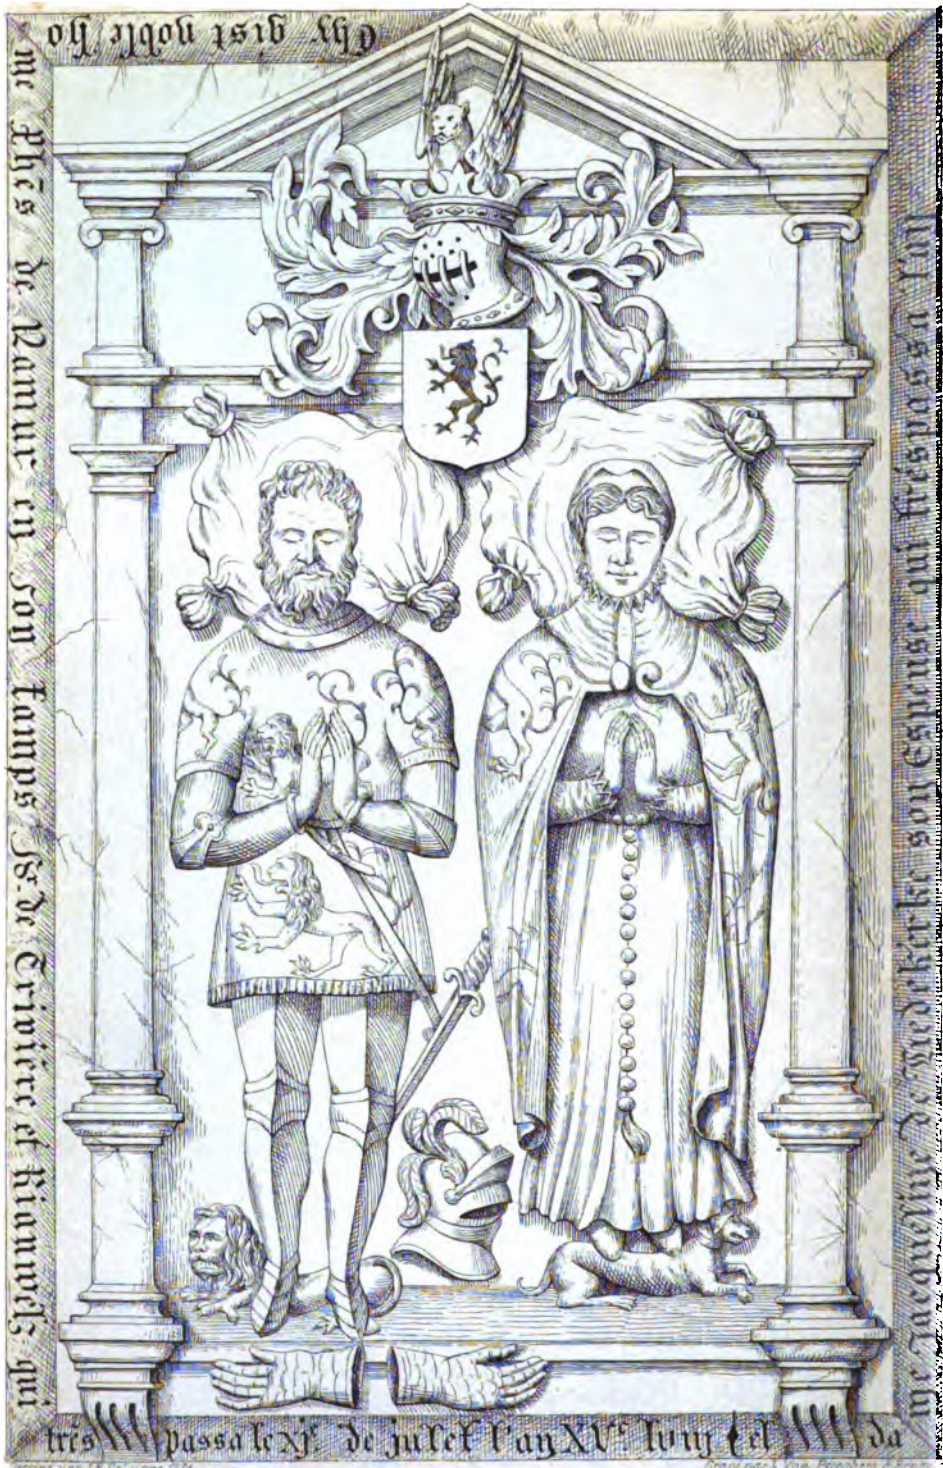 Chy gist noble ho
me Phēs de Namur en son tamps Sr de Trivière et Rianwels qui
très passa le xje de julet l'an XVc lviij et da
me Jacqueline de Liedekerke son Espeuse qui tréspassa l'an